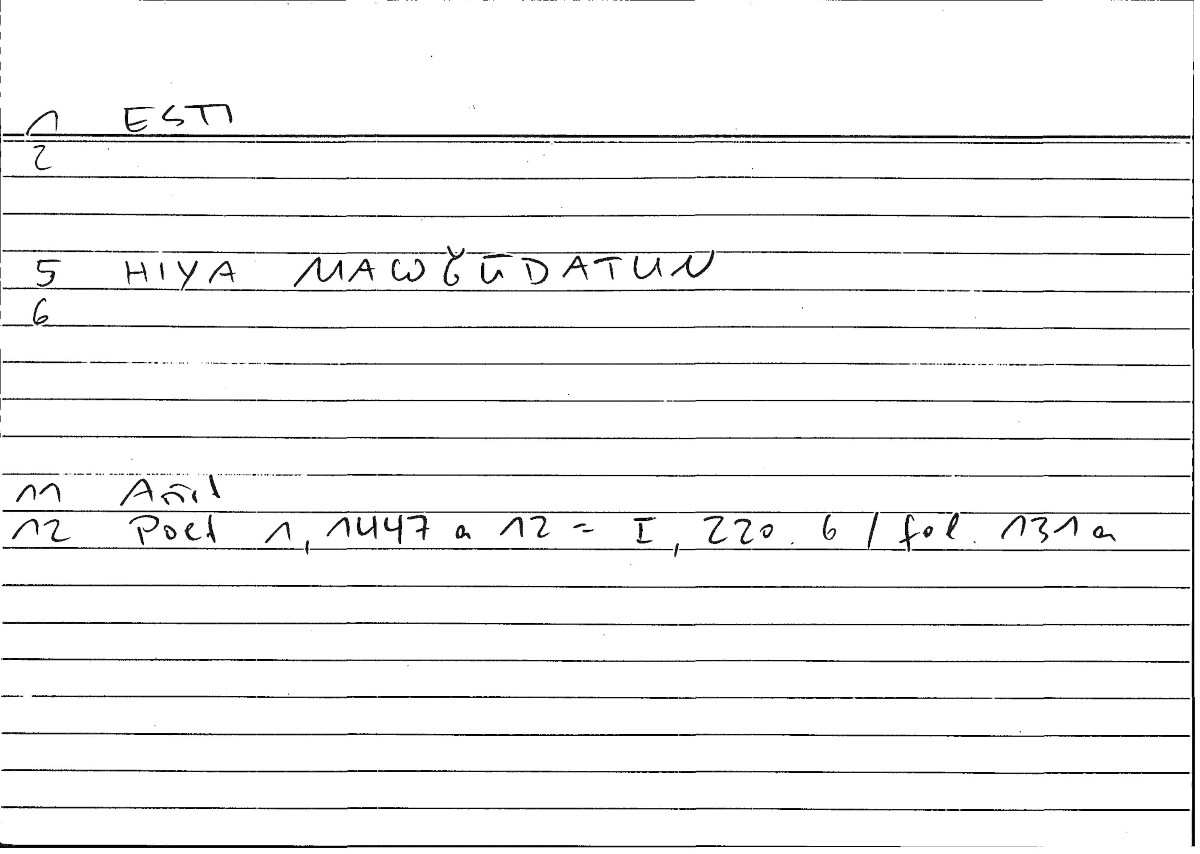 1 ESTI
2
5 HIYA MAWǦŪDATUN
6
11 Arist
12 Poet 1, 1447 a 12 = I, 220. 6 / fol. 131 a